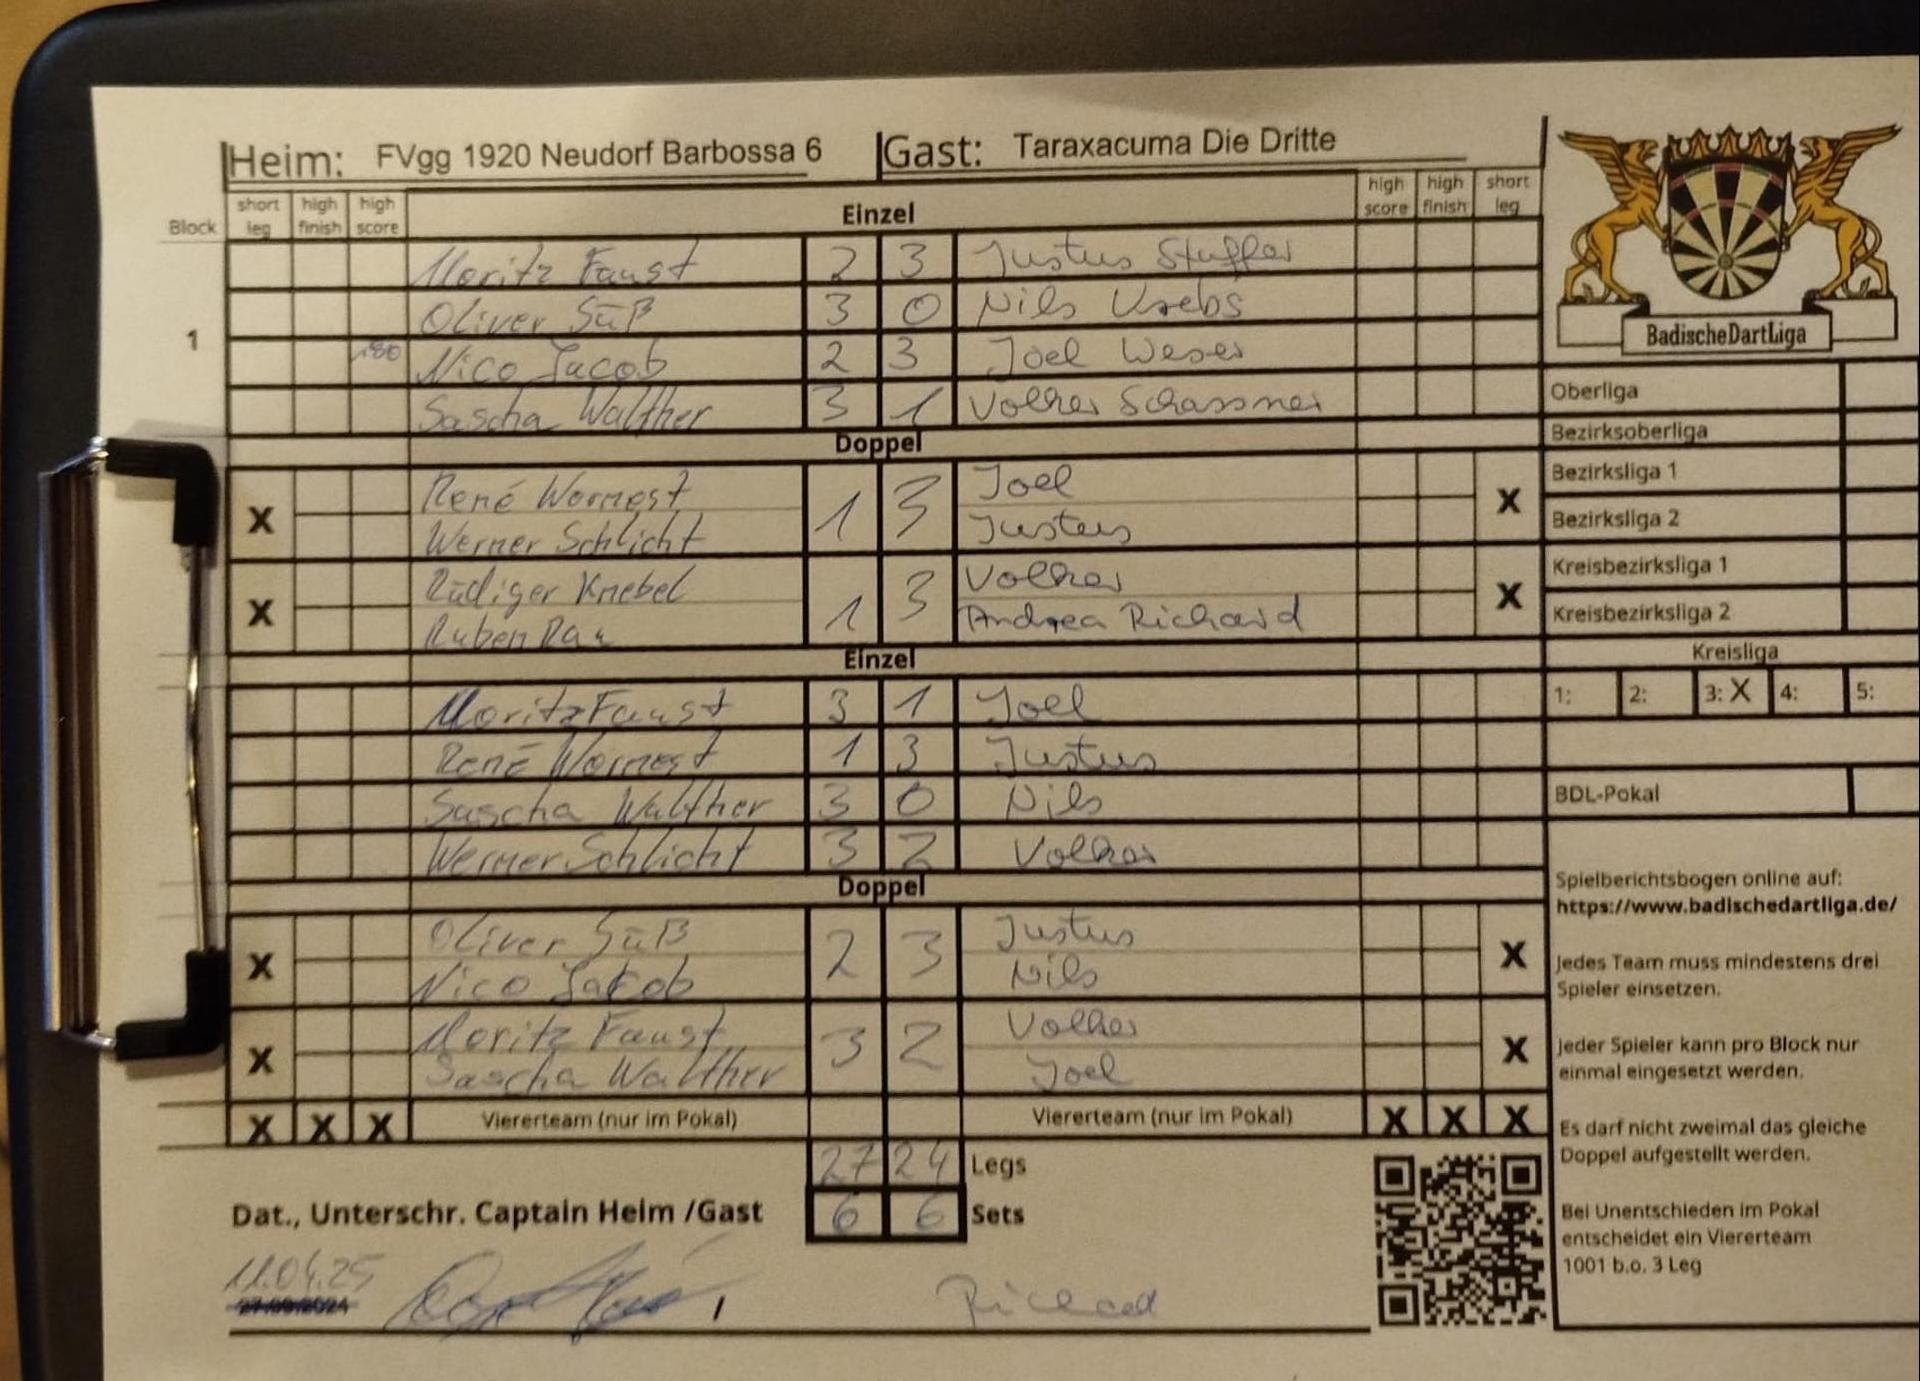 Heim: FVgg 1920 Neudorf Barbossa 6 Gast: Taraxacuma Die Dritte
Block short leg high finish high score Einzel high score high finish short leg
Moritz Faust 2 3 Justus Stuffer
Oliver Süß 3 0 Nils Krebs
1 180 Nico Jacob 2 3 Joel Weser
Sascha Walther 3 1 Volker Schassner
Doppel
X René Wornest 1 3 Joel X
Werner Schlicht Justus
X Rüdiger Knebel 1 3 Volker X
Ruben Rau Andrea Richard
Einzel
Moritz Faust 3 1 Joel
René Wornest 1 3 Justus
Sascha Walther 3 0 Nils
Werner Schlicht 3 2 Volker
Doppel
X Oliver Süß 2 3 Justus X
Nico Jakob Nils
X Moritz Faust 3 2 Volker X
Sascha Walther Joel
X X X Viererteam (nur im Pokal) Viererteam (nur im Pokal) X X X
27 24 Legs
6 6 Sets
Dat., Unterschr. Captain Heim /Gast
11.04.25
27.09.2024
/ Richard
BadischeDartLiga
Oberliga
Bezirksoberliga
Bezirksliga 1
Bezirksliga 2
Kreisbezirksliga 1
Kreisbezirksliga 2
Kreisliga
1: 2: 3: X 4: 5:
BDL-Pokal
Spielberichtsbogen online auf:
https://www.badischedartliga.de/
Jedes Team muss mindestens drei
Spieler einsetzen.
Jeder Spieler kann pro Block nur
einmal eingesetzt werden.
Es darf nicht zweimal das gleiche
Doppel aufgestellt werden.
Bei Unentschieden im Pokal
entscheidet ein Viererteam
1001 b.o. 3 Leg